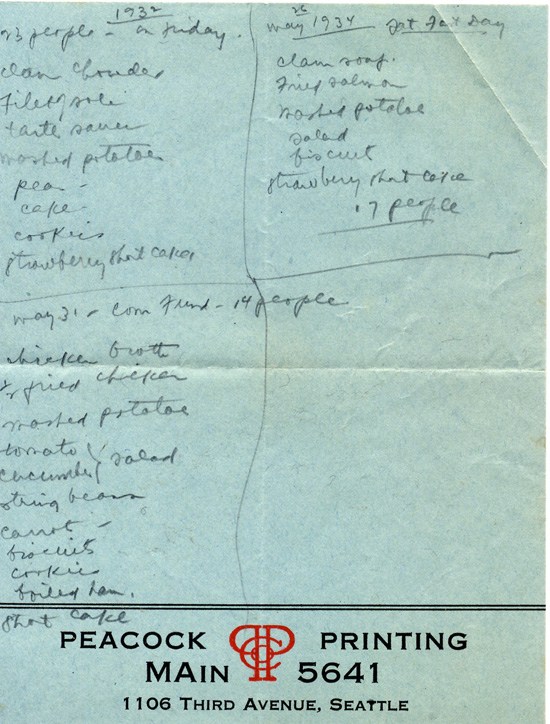 1932
23 people - on Friday.
clam chouder
Filet of sole
tarter sauce
mashed potatoe
peas -
cake -
cookies
strawberry short cake
May 26 1934
clam soup.
Fried salmon
mashed potatoe
salad
biscuit
strawberry short cake
17 people
May 31 - Com Fund - 14 people
chicken broth
fried chicken
mashed potatoe
tomato
cucumber salad
string beans
carrot -
biscuits
cookies
boiled ham.
short cake
PEACOCK PPCo PRINTING
MAIN 5641
1106 THIRD AVENUE, SEATTLE